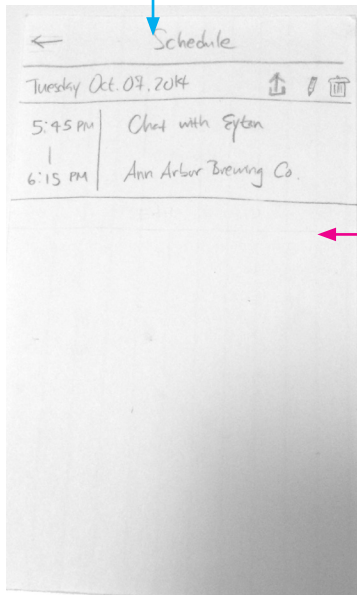 Schedule
Tuesday Oct. 07. 2014
5:45 PM Chat with Eytan
6:15 PM Ann Arbor Brewing Co.